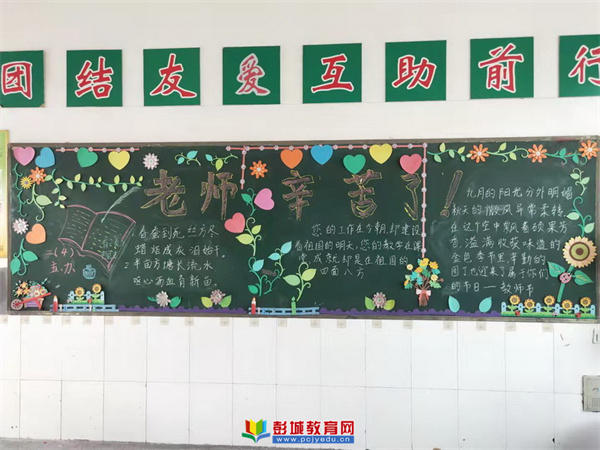 团结友爱互助前行
老师辛苦了!
二(4)
主办
春蚕到死丝方尽
蜡炬成灰泪始干.
半亩方塘长流水
呕心沥血育新苗.
您的工作在今朝,却建设
着祖国的明天,您的教学在课
堂,成就却是在祖国的
四面八方
九月的阳光分外明媚
秋天的微风异常柔
在这个空中飘着硕果芳
香,溢满收获味道的
金色季节里,辛勤的
园丁也迎来了属于你们
的节日——教师节
彭城教育网
www.pcjyedu.cn